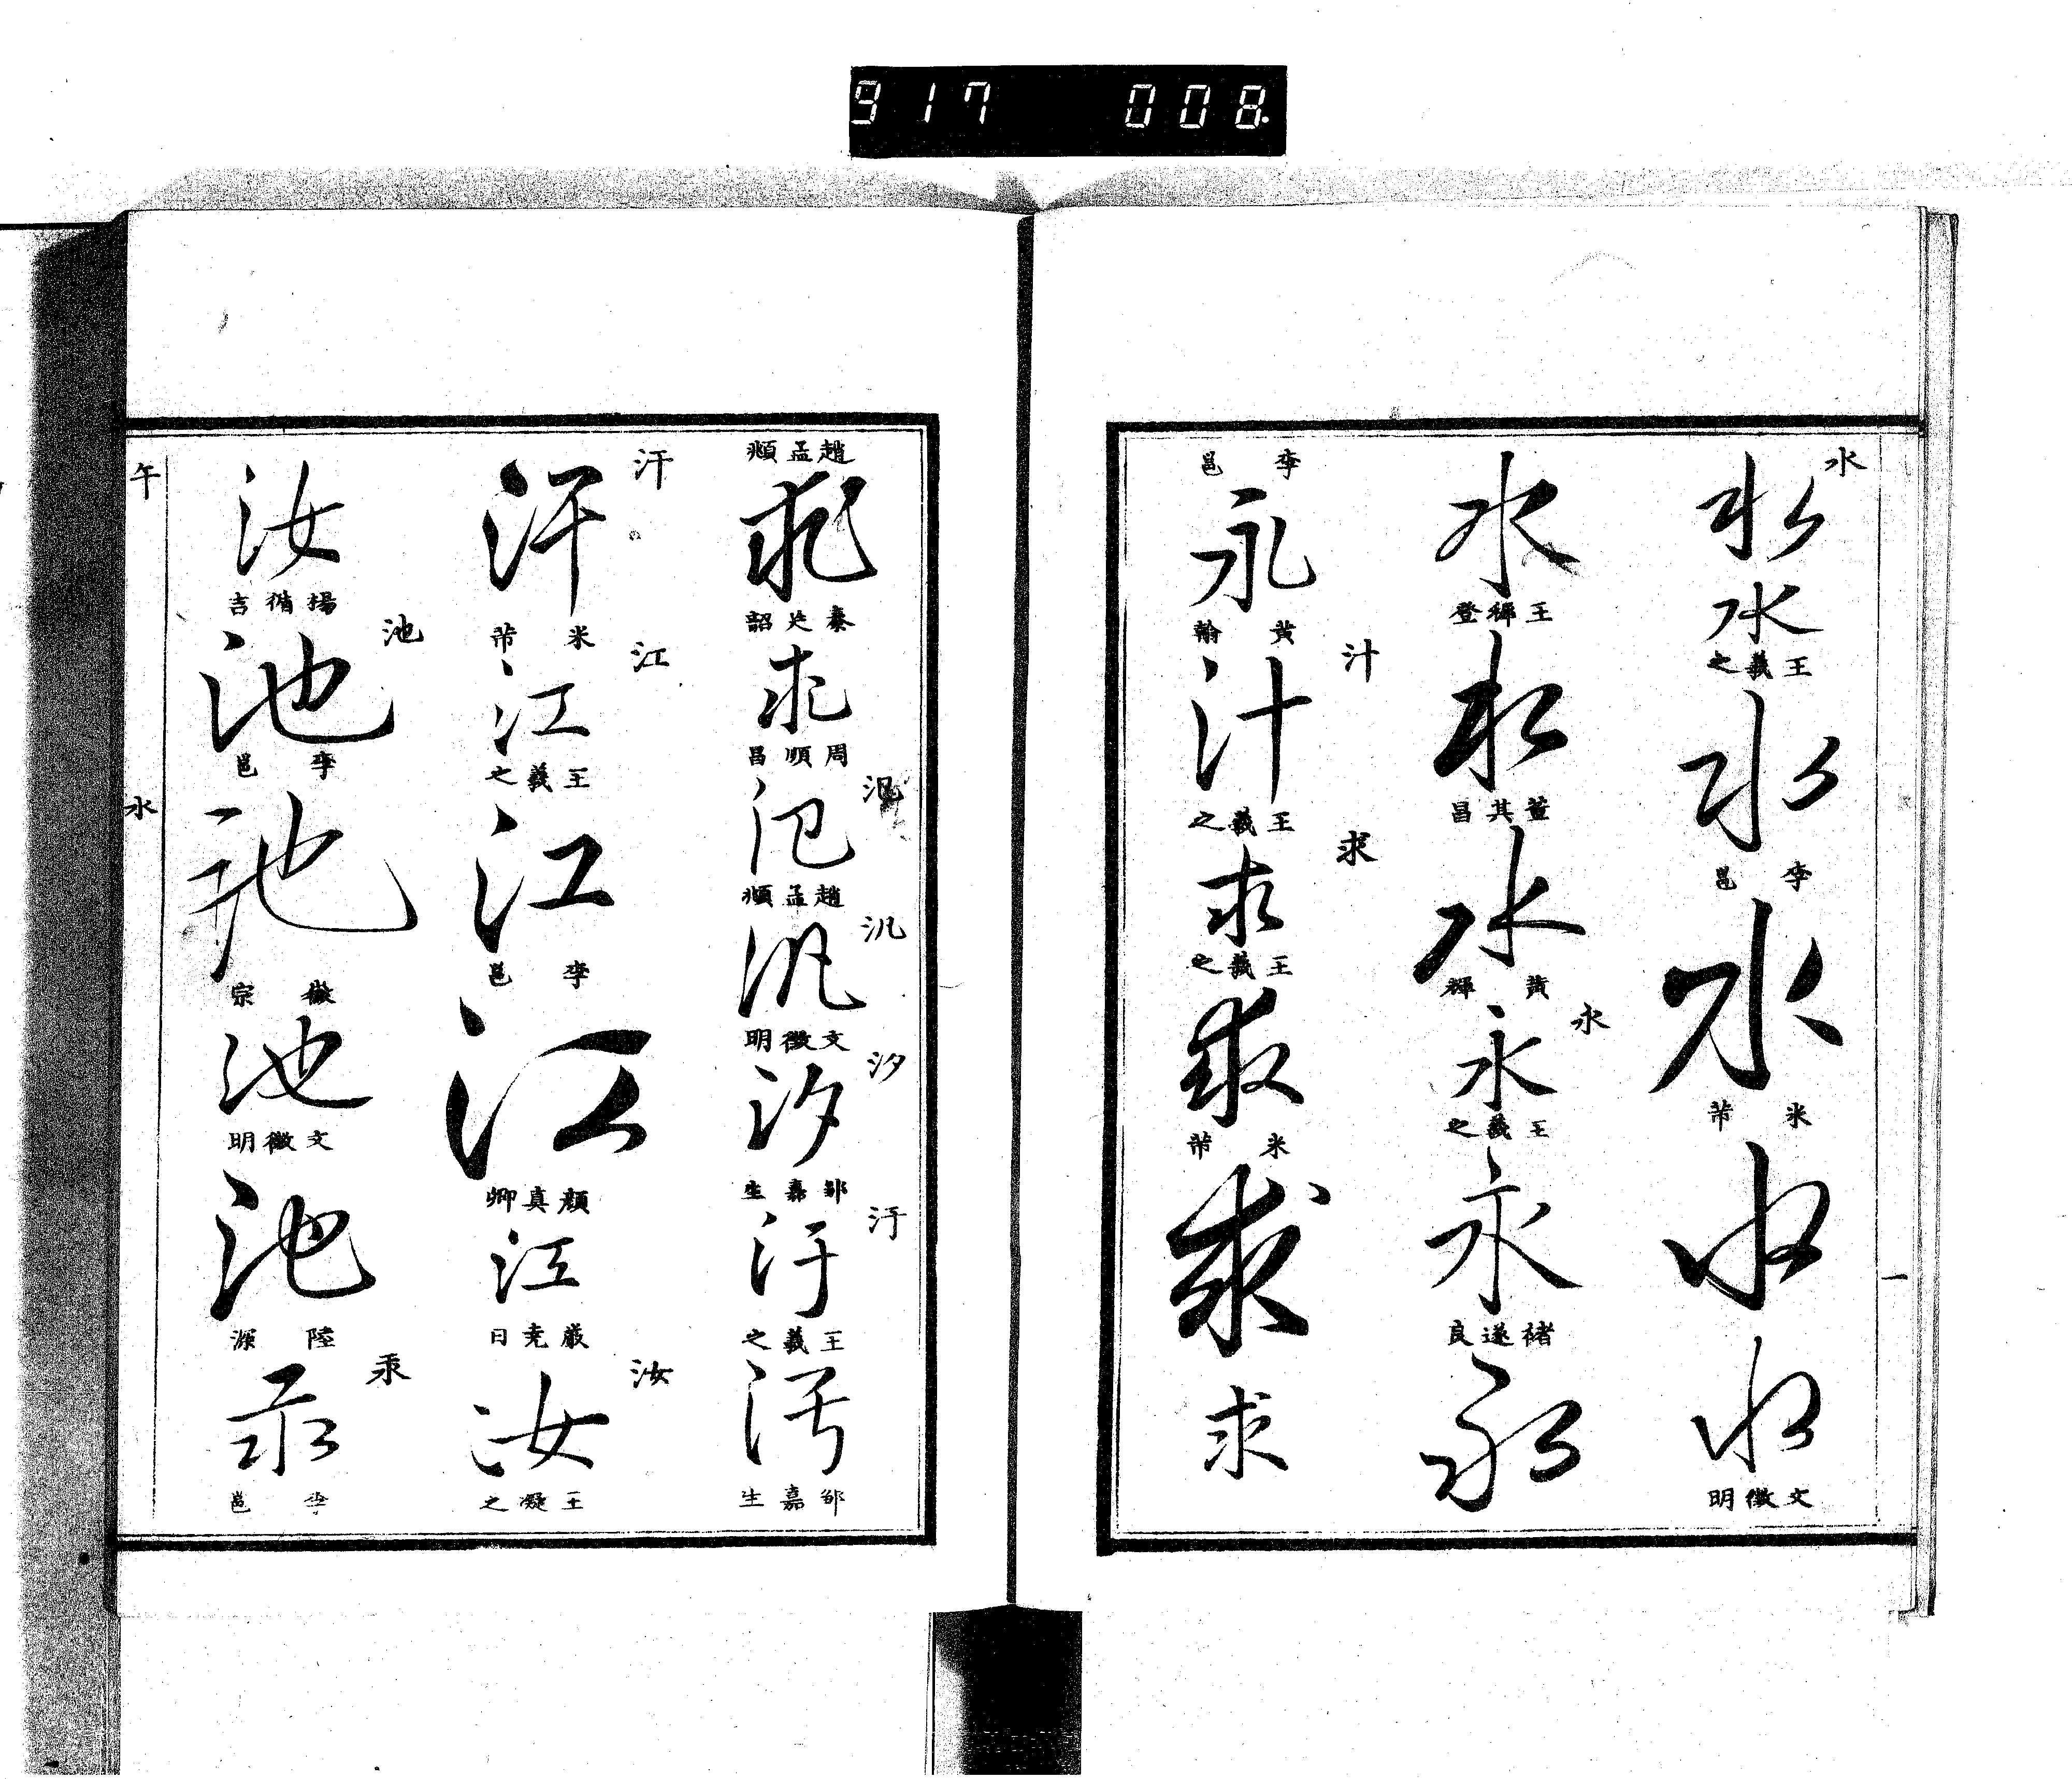 917 008.
水
水
水
王羲之
水
李邕
水
米芾
水
水
文徵明
一
水
王穉登
水
董其昌
水
黄輝
永
永
王羲之
永
褚遂良
永
李邕
永
黄翰
汁
汁
王羲之
求
求
王羲之
求
米芾
求
求
趙孟頫
求
求
周順昌
氾
趙孟頫
汎
汎
文徵明
汐
汐
邹嘉生
汙
汙
王羲之
汚
邹嘉生
汗
汗
米芾
江
江
王羲之
江
李邕
江
顔真卿
江
汝
汝
王凝之
汝
池
池
李邕
池
徽宗
池
文徵明
池
陸源
汞
汞
李邕
午
水